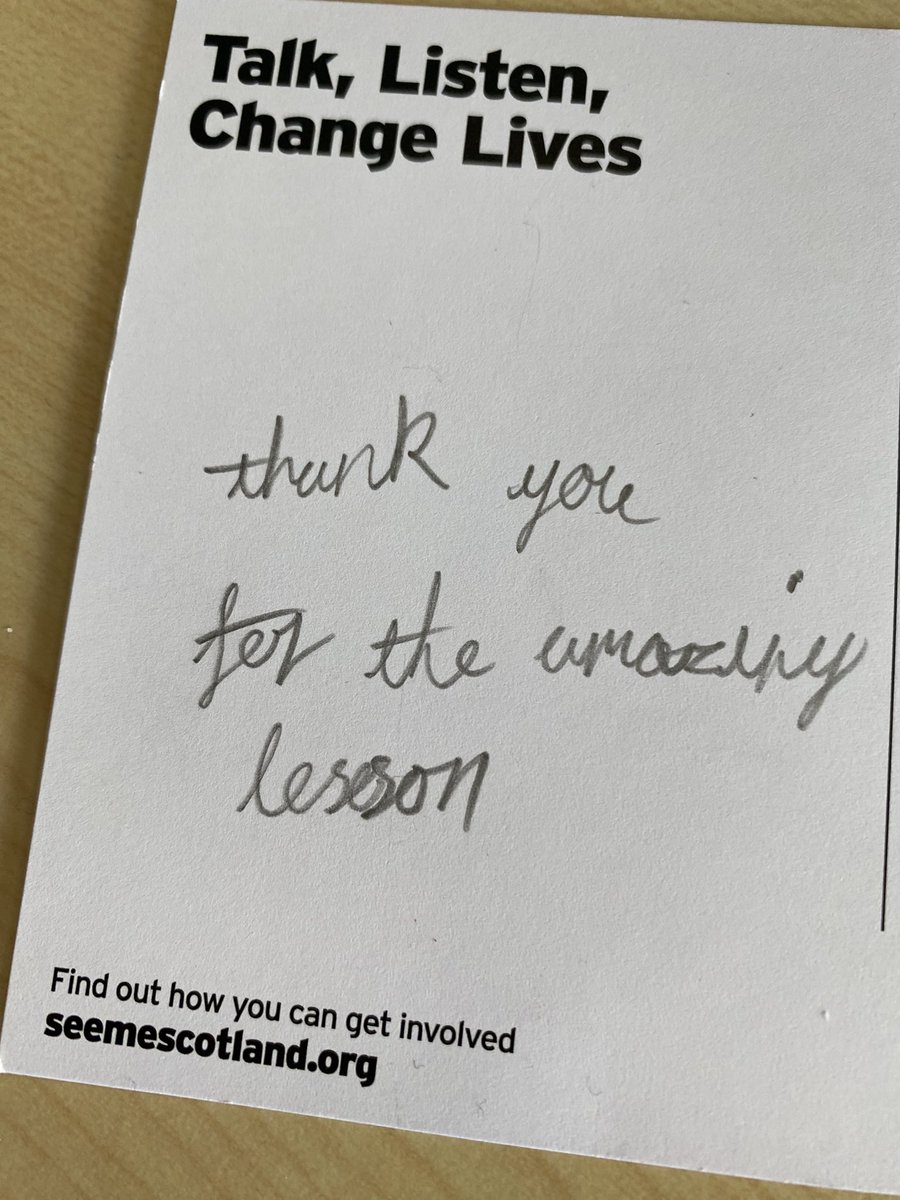 Talk, Listen,
Change Lives
thank you
for the amazing
lesson
Find out how you can get involved
seemescotland.org